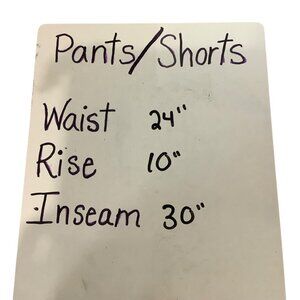 Pants/Shorts
Waist 24"
Rise 10"
Inseam 30"